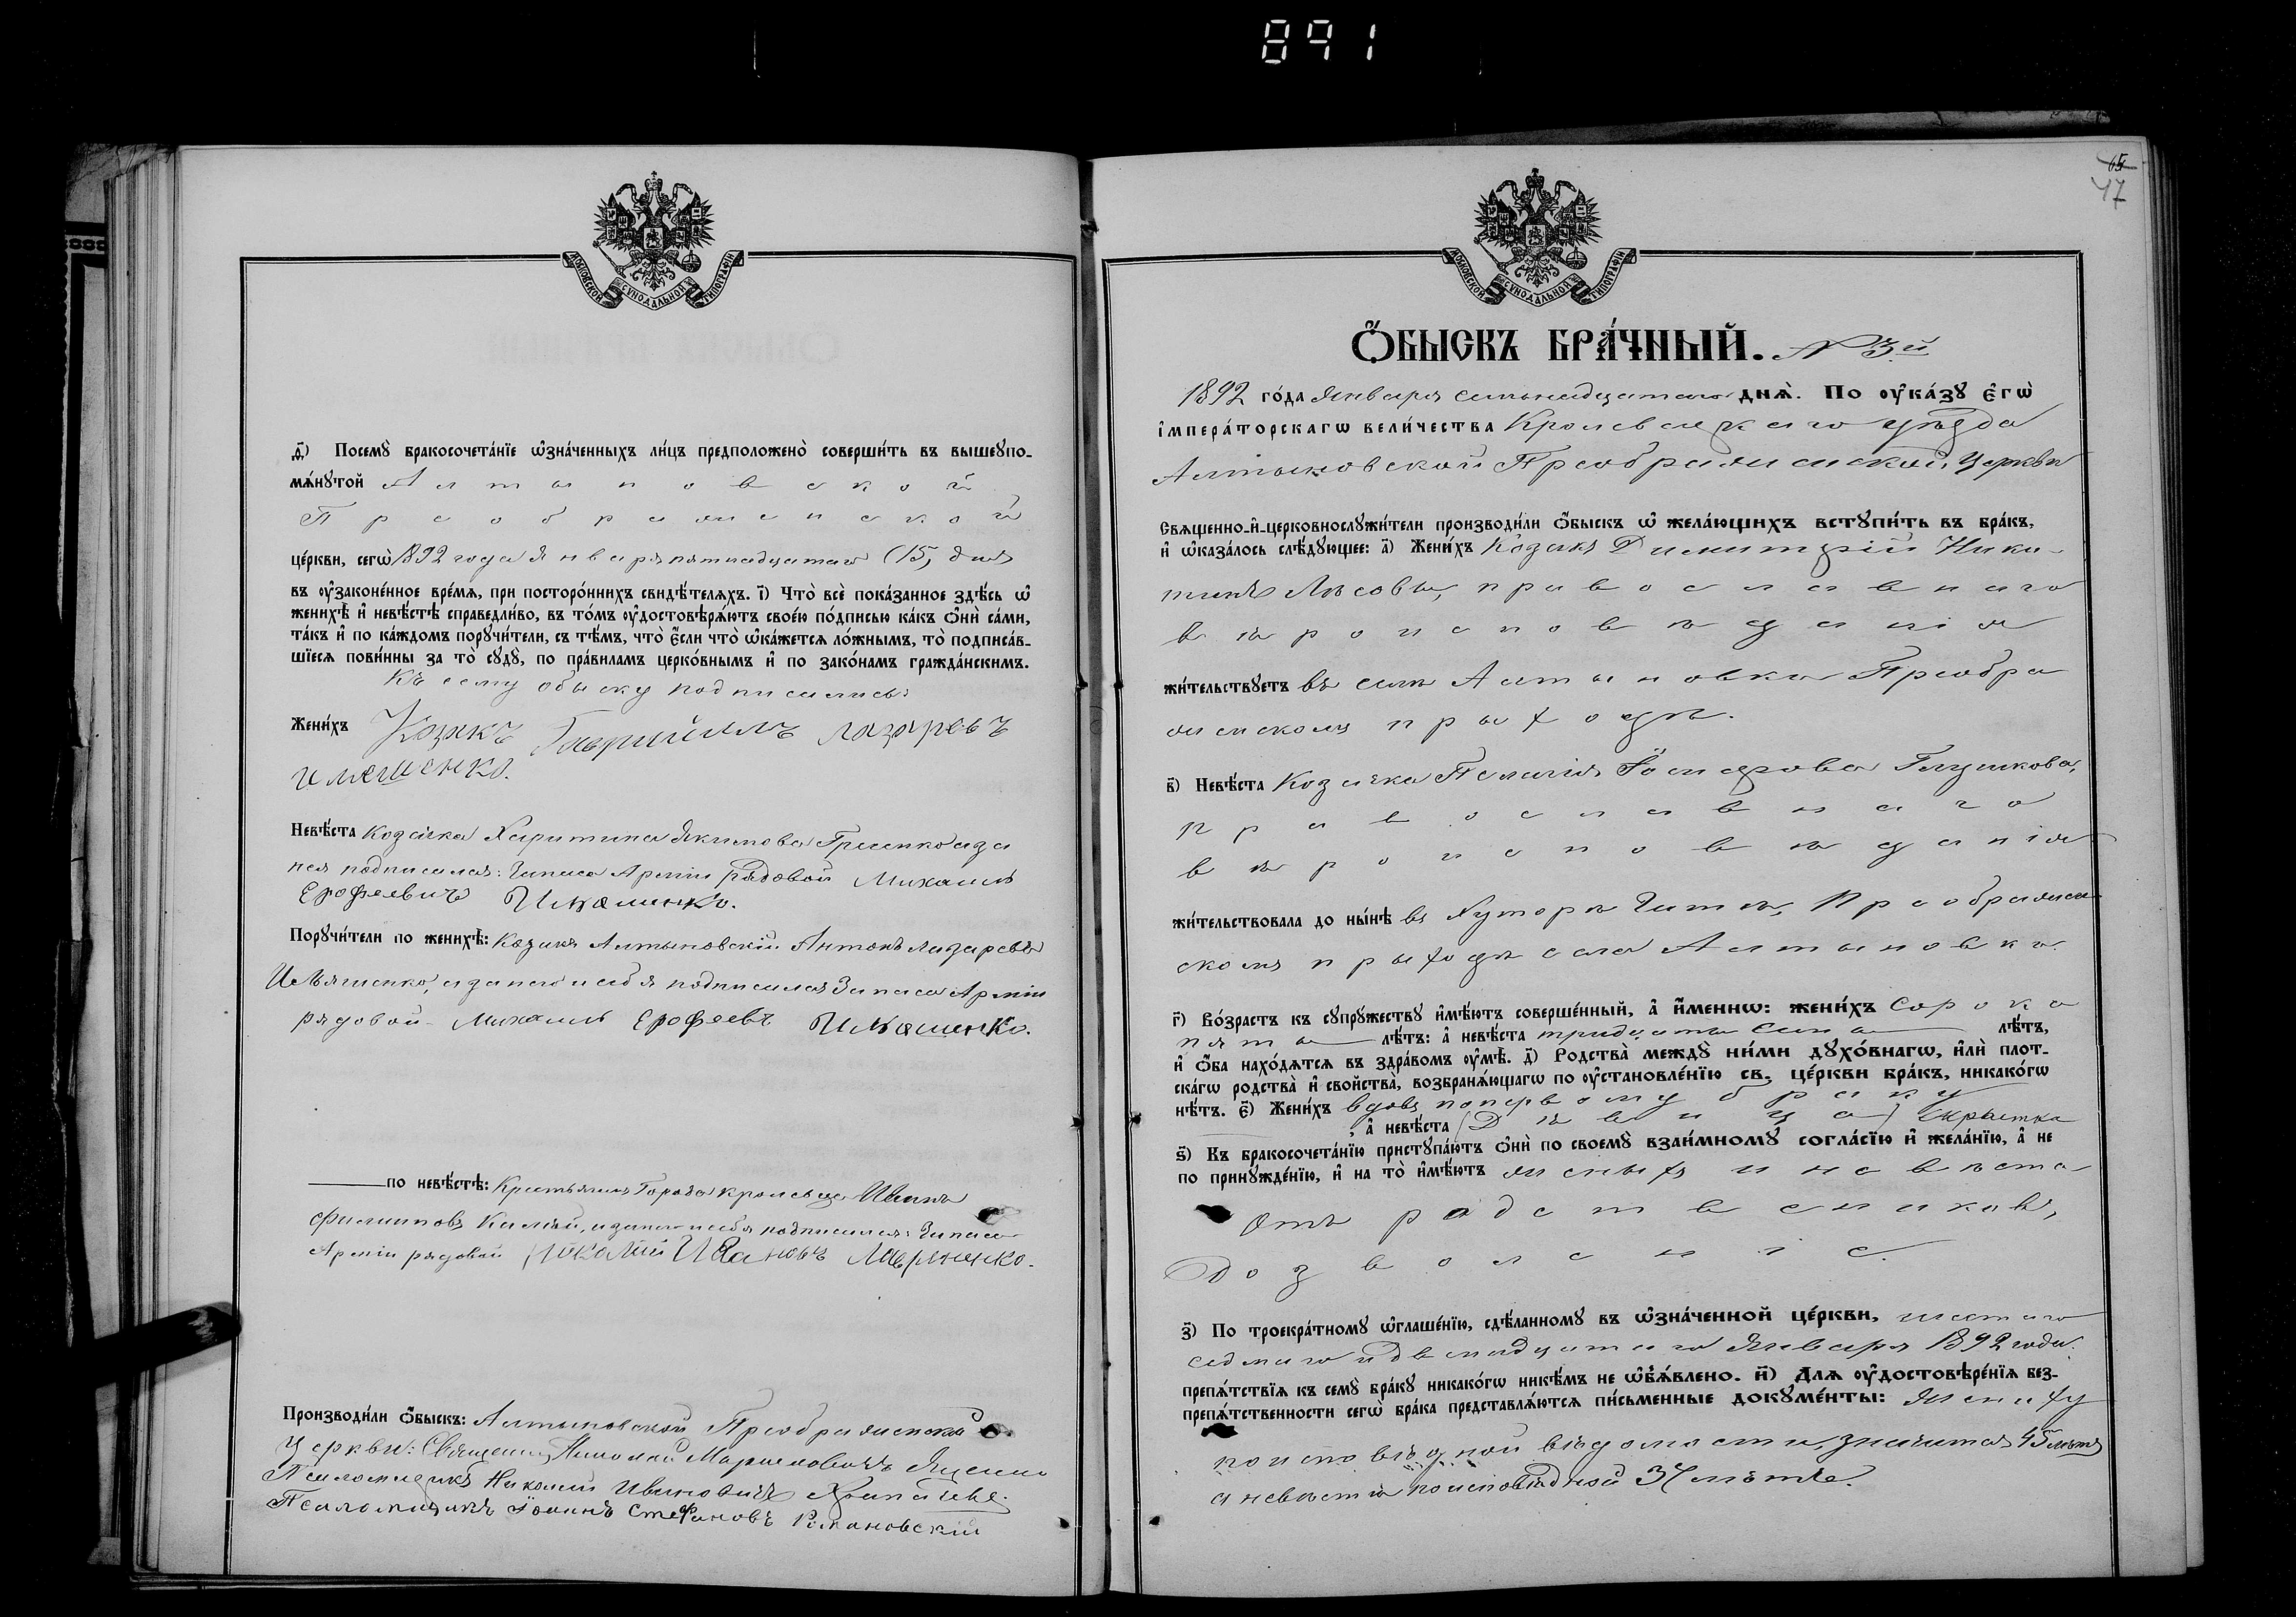 891
МОСКОВСКОЙ СѴНОДАЛЬНОЙ ТИПОГРАФІИ
ѳ҃) Посемꙋ̀ бракосочета́нїе ѡ҆зна́ченныхъ ли́цъ предположено̀ соверши́ть въ вышеꙋпо-
мѧ́нꙋтой Алтыновской
Преображенской
це́ркви, сегѡ̀ 1892 года января пятнадцатаго (15) дня
въ ᲂу҆зако́ненное вре́мѧ, при посторо́ннихъ свидѣ́телѧхъ. і҃) Что̀ всѐ пока́занное здѣ́сь ѡ҆
женихѣ̀ и҆ невѣ́стѣ справедли́во, въ то́мъ ᲂу҆достовѣрѧ́ютъ свое́ю по́дписью ка́къ ѻ҆нѝ са́ми,
та́къ и҆ по ка́ждомъ порꙋчи́тели, съ тѣ́мъ, что̀ є҆́сли что̀ ѡ҆ка́жетсѧ ло́жнымъ, то̀ подписа́в-
шїесѧ пови́нны за то̀ сꙋдꙋ̀, по пра́виламъ церко́внымъ и҆ по зако́намъ гражда́нскимъ.
Къ сему обыску подписались:
Жени́хъ Козакъ Гавриилъ лазаревъ
Невѣ́ста козачка Харитина Якимова а за
нея подписался: Запаса Армiи рядовой Михаилъ
Ерофеевичъ Ильяшенко.
Порꙋчи́тели по женихѣ̀: Козакъ Алтыновскiй Антонъ лазаревъ
Ильяшенко, а за него и себя подписался Запаса Армiи
рядовой Михаилъ Ерофеевъ Ильяшенко.
по невѣ́стѣ: Крестьянинъ Города Кролевца Иванъ
Филипповъ а за него и себя подписался: Запаса
Армiи рядовой Николай Ивановъ Лавриненко.
Производи́ли ѻ҆́быскъ: Алтыновской Преображенской
Церкви: Священникъ Николай
Псаломщикъ Николай Ивановичъ
Псаломщикъ Іоаннъ Стефановъ Романовскій
65
47
МОСКОВСКОЙ СѴНОДАЛЬНОЙ ТИПОГРАФІИ
Ѻ҆́быскъ бра́чный. № 3й
1892 го́да Января семнадцатаго днѧ̀. По ᲂу҆ка́зꙋ є҆гѡ̀
і҆мпера́торскагѡ вели́чества Кролевецкаго уѣзда
Алтыновской Преображенской церкви
Свѧще́нно-и҆-церковнослꙋжи́тели производи́ли ѻ҆́быскъ ѡ҆ жела́ющихъ встꙋпи́ть въ бра́къ,
и҆ ѡ҆каза́лось слѣ́дꙋющее: а҃) Жени́хъ Козакъ Димитрій Ники-
тинъ Лѣсовъ, православнаго
вѣроисповѣданія
жи́тельствꙋетъ въ селѣ Алтыновкѣ Преобра
женскомъ приходѣ.
в҃) Невѣ́ста Козачка Пелагія Глушкова,
православнаго
вѣроисповѣданія
жи́тельствовала до ны́нѣ въ Хуторѣ Преображен
скомъ приходѣ села Алтыновки
г҃) Во́зрастъ къ сꙋпрꙋ́жествꙋ и҆мѣ́ютъ соверше́нный, а҆ и҆́меннѡ: жени́хъ сорока
пяти лѣ́тъ: а҆ невѣ́ста тридцати семи лѣ́тъ,
и҆ ѻ҆́ба нахо́дѧтсѧ въ здра́вомъ ᲂу҆мѣ̀. д҃) Родства̀ междꙋ̀ ни́ми дꙋхо́внагѡ, и҆лѝ плот-
ска́гѡ родства̀ и҆ сво́йства̀, возбранѧ́ющагѡ по ᲂу҆становле́нїю св. це́ркви бра́къ, никако́гѡ
нѣ́тъ. є҃) Жени́хъ вдовъ по первому браку
, а҆ невѣ́ста (Дѣвица)
ѕ҃) Къ бракосочета́нїю пристꙋпа́ютъ ѻ҆нѝ по своемꙋ̀ взаи́мномꙋ согла́сїю и҆ жела́нїю, а҆ не
по принꙋжде́нїю, и҆ на то̀ и҆мѣ́ютъ женихъ и невѣста
отъ родственниковъ,
дозволеніе.
з҃) По троекра́тномꙋ ѡ҆глаше́нїю, сдѣ́ланномꙋ въ ѡ҆зна́ченной це́ркви, шестаго
седмаго и двенадцатаго Января 1892 года.
препѧ́тствїѧ къ семꙋ̀ бра́кꙋ никако́гѡ никѣ́мъ не ѡ҆б̾ѧ́влено. и҃) Длѧ ᲂу҆достовѣре́нїѧ без-
препѧ́тственности сегѡ̀ бра́ка представлѧ́ютсѧ пи́сьменные докꙋме́нты: Жениху
по исповѣдной вѣдомости, значится 45 лѣтъ
а невѣстѣ по исповѣдной 37 лѣтъ.